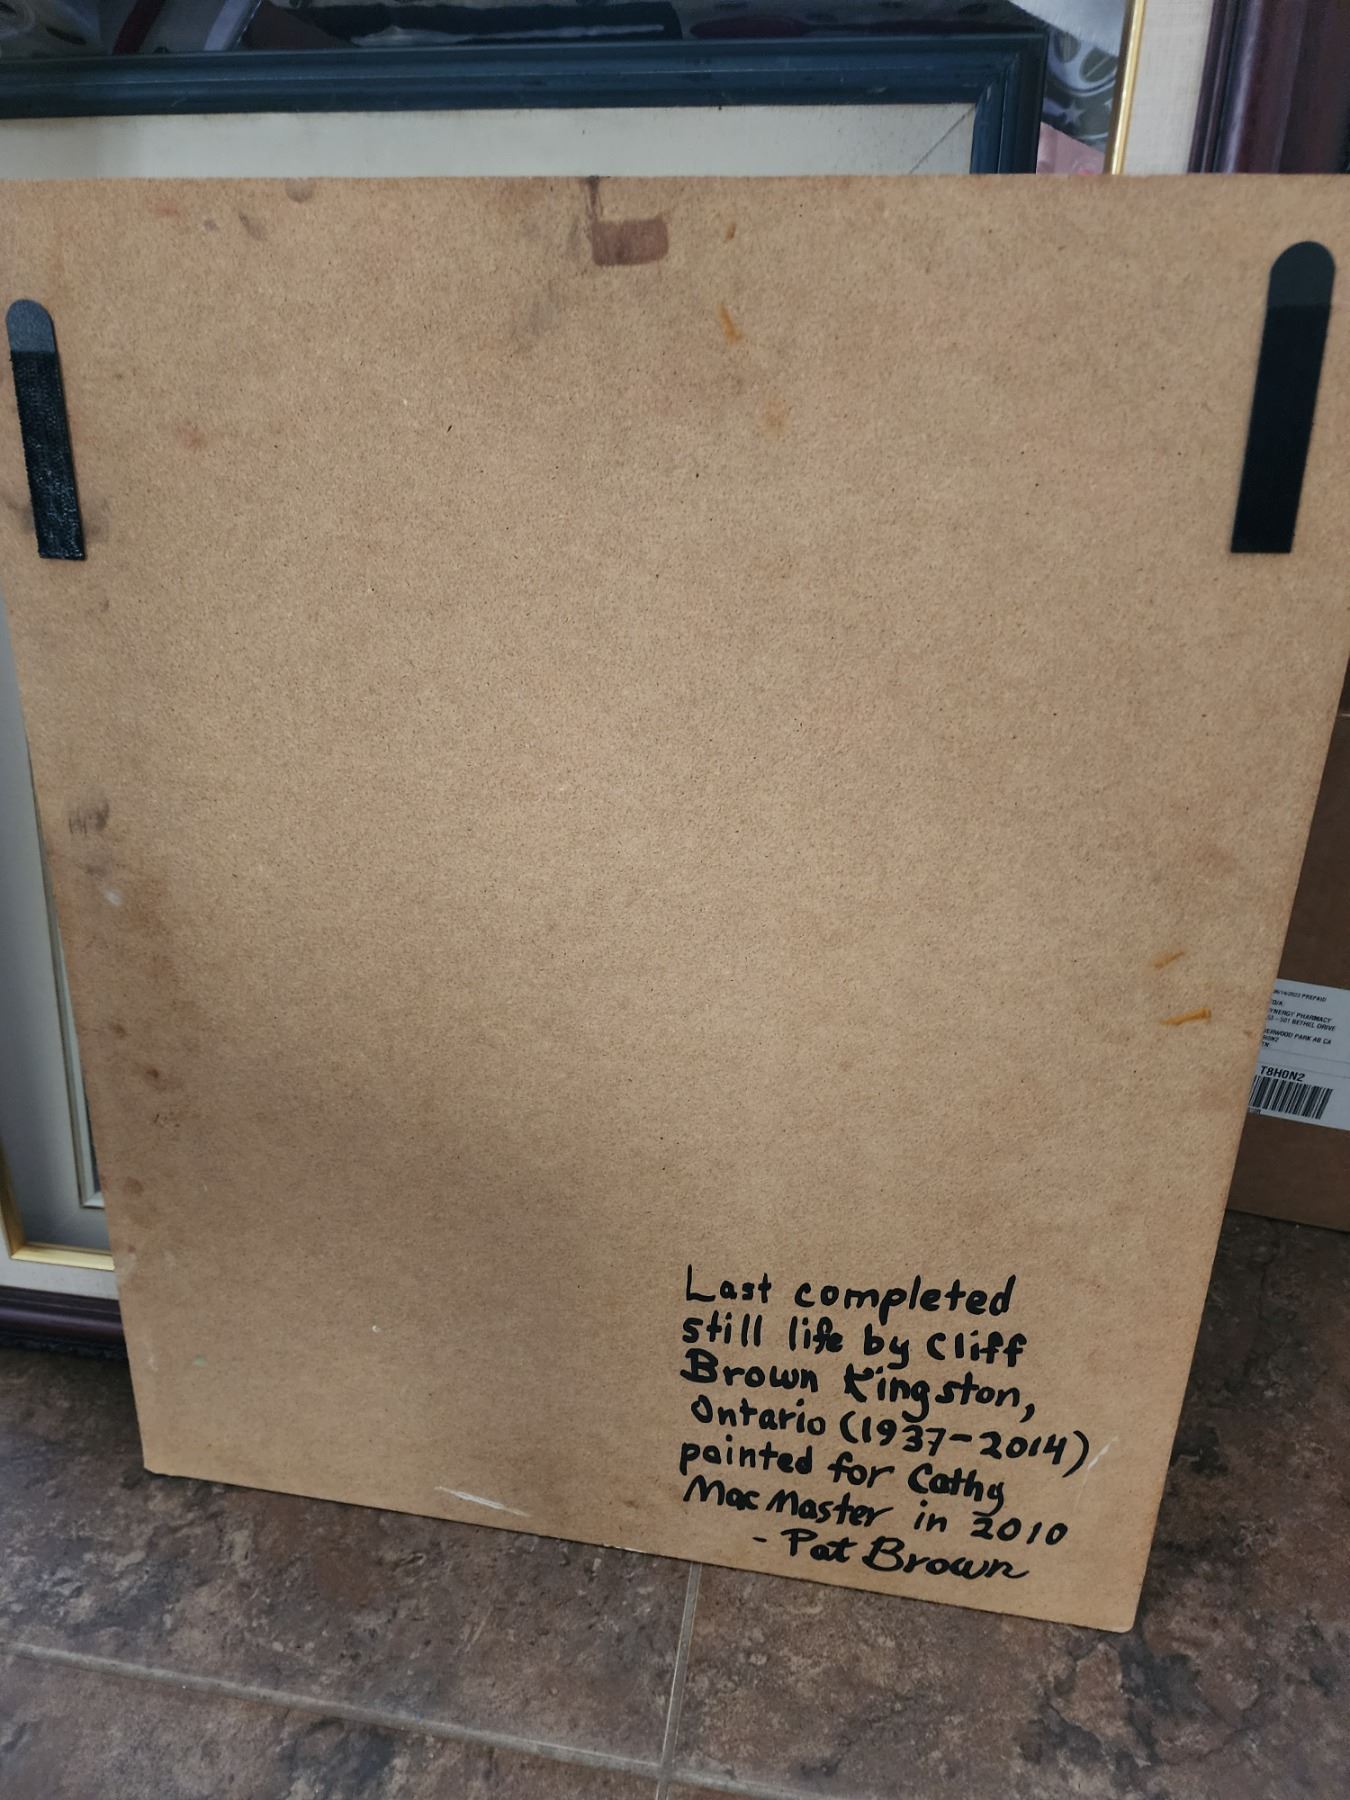 Last completed
still life by Cliff
Brown Kingston,
Ontario (1937-2014)
painted for Cathy
MacMaster in 2010
- Pat Brown
PREPAID
SYNERGY PHARMACY
501 BETHEL DRIVE
PARK AB CA
T8H0N2